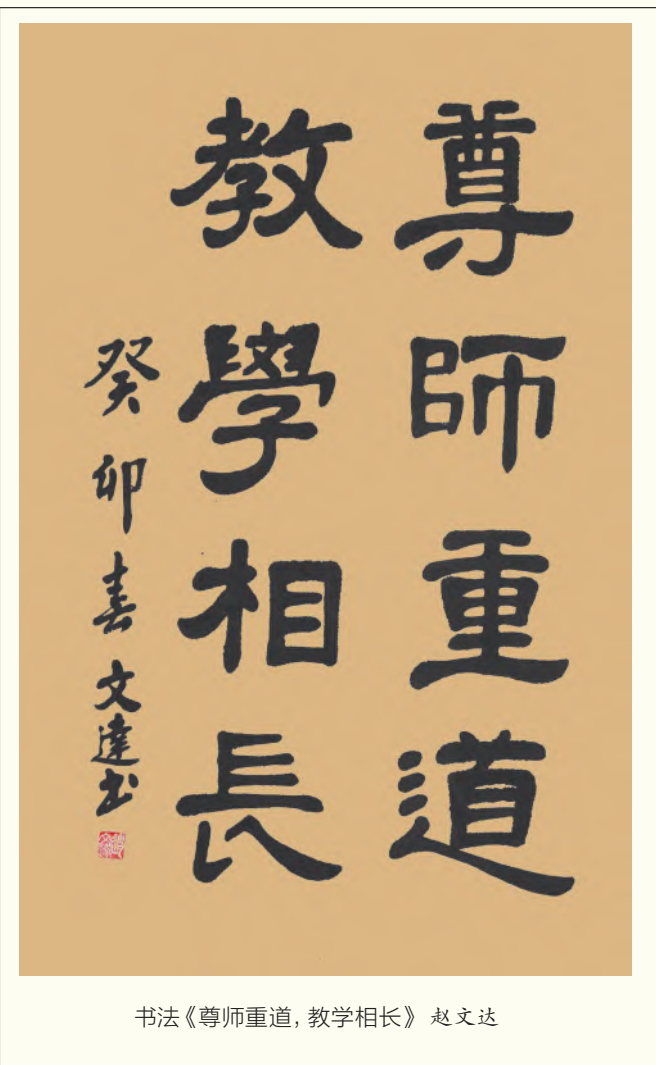 尊師重道
教學相長
癸卯春文達书
书法《尊师重道，教学相长》 赵文达